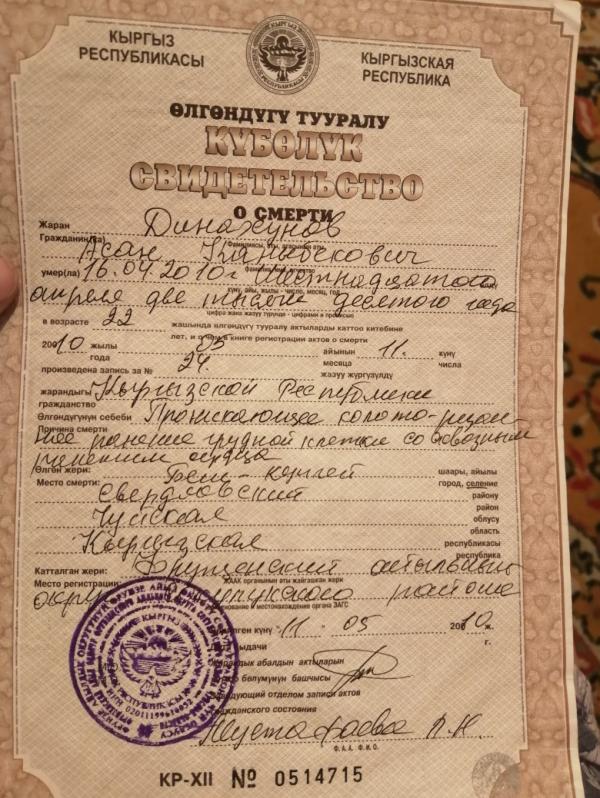 КЫРГЫЗ РЕСПУБЛИКАСЫ
КЫРГЫЗСКАЯ РЕСПУБЛИКА
ӨЛГӨНДҮГҮ ТУУРАЛУ
КҮБӨЛҮК
СВИДЕТЕЛЬСТВО
О СМЕРТИ
Жаран
Гражданин(ка) Динахунов
Асан Каныбекович
умер(ла) 16.04.2010г. шестнадцатого
күнү, айы, жылы - число, месяц, год
апреля две тысячи десятого года
цифра жана жазуу түрүндө - цифрами и прописью
в возрасте 22 жашында өлгөндүгү тууралу актыларды каттоо китебине
лет, и о чем в книге регистрации актов о смерти
2010 жылы 05 айынын 11. күнү
года месяца числа
произведена запись за № 24. жазуу жүргүзүлдү
жарандыгы Кыргызской Республики
гражданство
Өлгөндүгүнүн себеби Проникающее колото-резан-
Причина смерти
ное ранение грудной клетки со сквозным
ранением сердца
Өлгөн жери: Беш-кунгей шаары, айылы
Место смерти: город, селение
Свердловский району
район
Чуйская облусу
область
Кыргызская республикасы
республика
Катталган жери: айылный
Место регистрации: района
ЖААК органынын аты жайгашкан жери
наименование и местонахождение органа ЗАГС
Берилген күнү "11" 05 2010 ж.
Дата выдачи г.
Жарандык абалдын актыларын
каттоо бөлүмүнүн башчысы
Заведующий отделом записи актов
гражданского состояния
Мустафаева
Ф.А.А. Ф.И.О.
КР-XII № 0514715